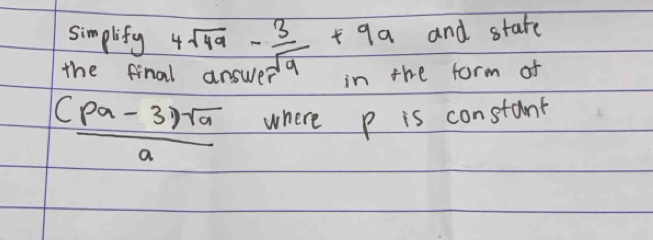 Simplify 4√4a - 3/√a + 9a and state
the final answer in the form of
(pa - 3)√a / a where p is constant